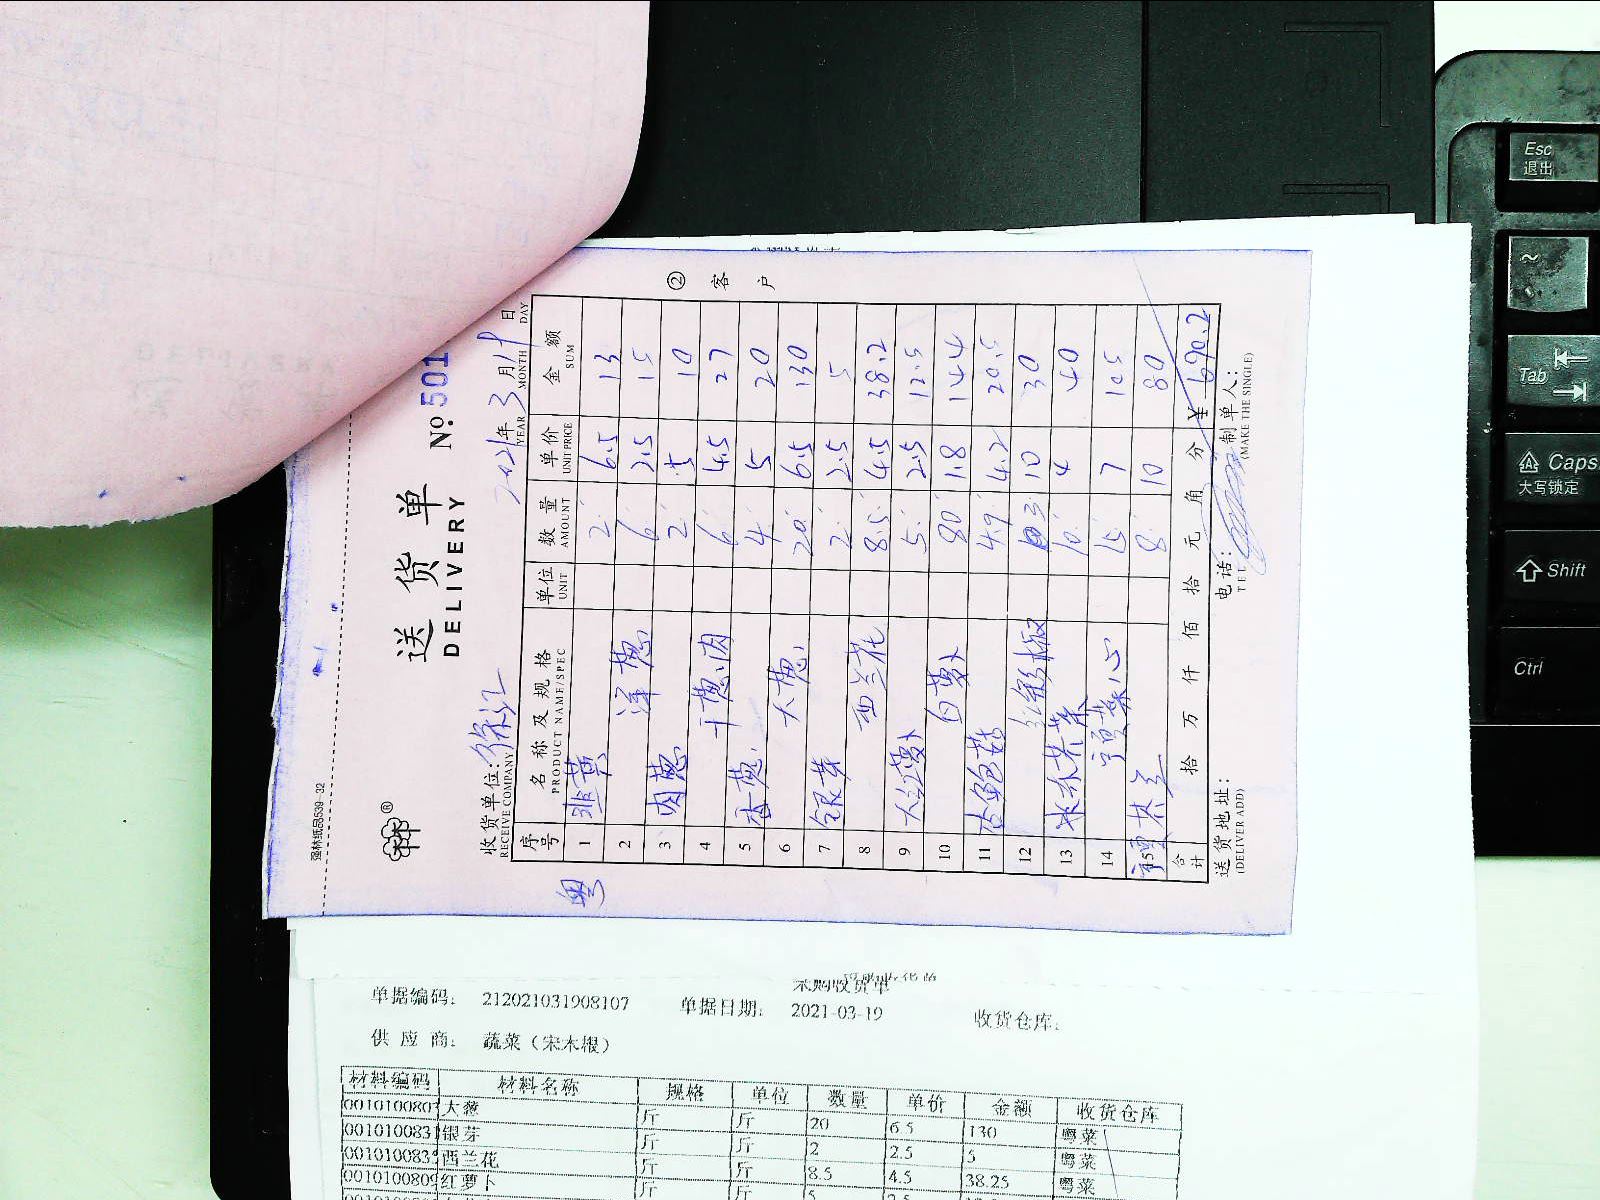 强林纸品539-32
送货单
DELIVERY
No. 501
收货单位: 徐汇
RECEIVE COMPANY
2021年 3月19日
YEAR MONTH DAY
② 客户
粤
序号 名称及规格 单位 数量 单价 金额
PRODUCT NAME/SPEC UNIT AMOUNT UNIT PRICE SUM
1 韭黄 2 6.5 13
2 洋葱 6 2.5 15
3 肉葱 2 5 10
4 干葱肉 6 4.5 27
5 香葱 4 5 20
6 大葱 20 6.5 130
7 银芽 2 2.5 5
8 西兰花 8.5 4.5 38.2
9 大红萝卜 5 2.5 12.5
10 白萝卜 80 1.8 144
11 杏鲍菇 4.9 4.2 20.5
12 红彩椒 3 10 30
13 10 4 40
14 菜心 15 7 105
15 8 10 80
合计 拾 万 仟 佰 拾 元 角 分 ¥ 690.2
送货地址: 电话: 制单人:
(DELIVER ADD) TEL (MAKE THE SINGLE)
采购收货单
单据编码: 212021031908107 单据日期: 2021-03-19 收货仓库:
供应商: 蔬菜(宋木根)
材料编码 材料名称 规格 单位 数量 单价 金额 收货仓库
大葱 斤 斤 20 6.5 130 粤菜
银芽 斤 斤 2 2.5 5 粤菜
西兰花 斤 斤 8.5 4.5 38.25 粤菜
红萝卜 斤 斤 5 2.5
Esc
退出
~
Tab
Caps
大写锁定
Shift
Ctrl